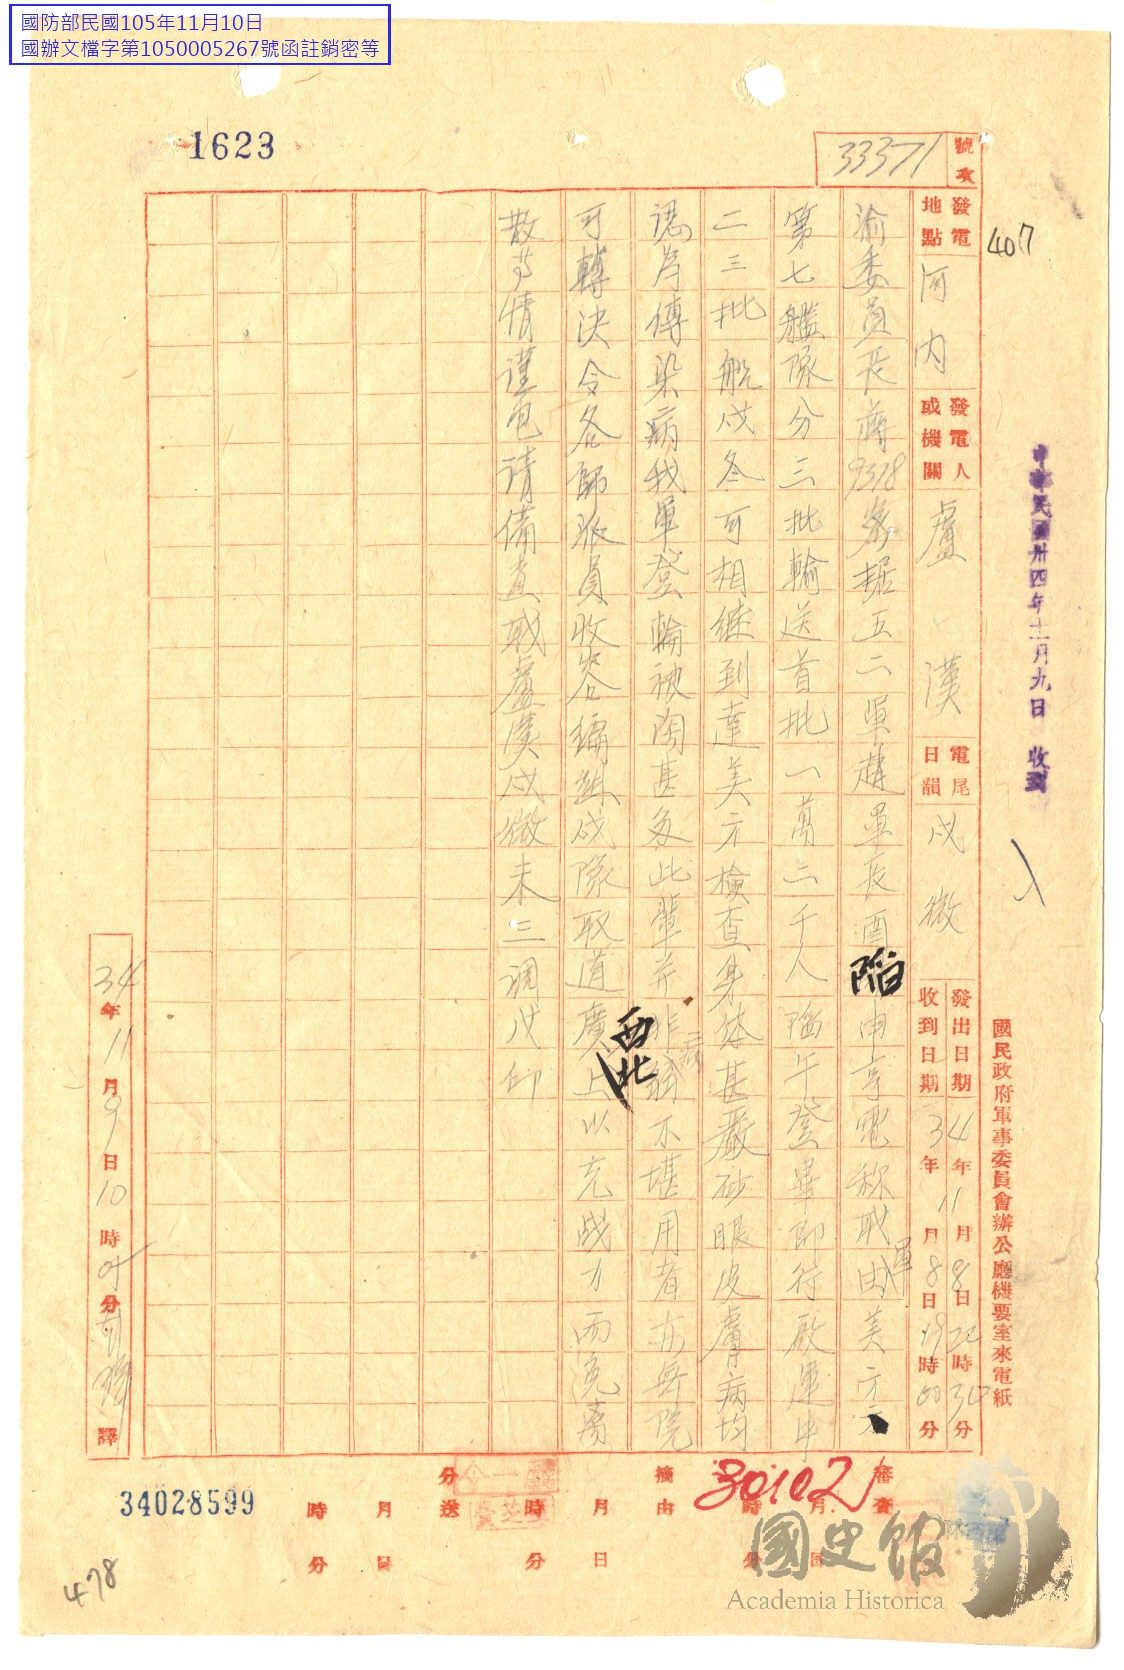 國防部民國105年11月10日
國辦文檔字第1050005267號函註銷密等
1623
號次
33371
407
中華民國卅四年十一月九日 收到
國民政府軍事委員會辦公廳機要室來電紙
發電地點
河內
發電人或機關
盧漢
電尾日韻
戍微
發出日期 34年11月8日22時30分
收到日期 年 月8日19時00分
渝委員長蔣9318密據五二軍趙軍長酉陷申亨電稱職軍由美方
第七艦隊分三批輸送首批一萬二千人陷午登畢即行啟運中
二三批船戍冬可相繼到達美方檢查身體甚嚴砂眼皮膚病均
認為傳染病我軍登輪被淘甚多此輩並非病弱不堪用者亦無院
可轉決令各師派員收容編組成隊取道廣西北上以充戰力而免离
散等情謹電請備查職盧漢戍微未三調戍仰
34年11月9日10時 分 譯
審查
月 日
時 分
摘由
月 日
時 分
分送
月 日
時 分
30102
34028599
478
國史館
Academia Historica